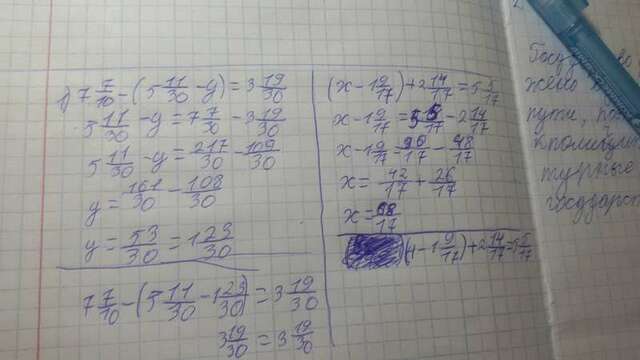 1) 7 7/10 - (5 11/30 - y) = 3 19/30
5 11/30 - y = 7 7/30 - 3 19/30
5 11/30 - y = 217/30 - 109/30
y = 161/30 - 108/30
y = 53/30 = 1 23/30
7 7/10 - (5 11/30 - 1 23/30) = 3 19/30
3 19/30 = 3 19/30
(x - 1 9/17) + 2 14/17 = 5 5/17
x - 1 9/17 = 5 5/17 - 2 14/17
x - 1 9/17 = 90/17 - 48/17
x = 42/17 + 26/17
x = 68/17
(4 - 1 9/17) + 2 14/17 = 5 5/17
пути,
турные
государст